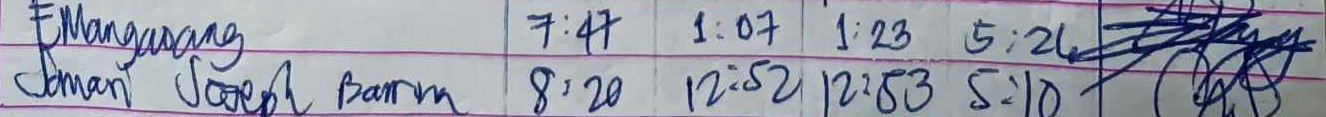 EMangawang 7:47 1:07 1:23 5:26
Joman Joseph Barrm 8:20 12:52 12:53 5:10